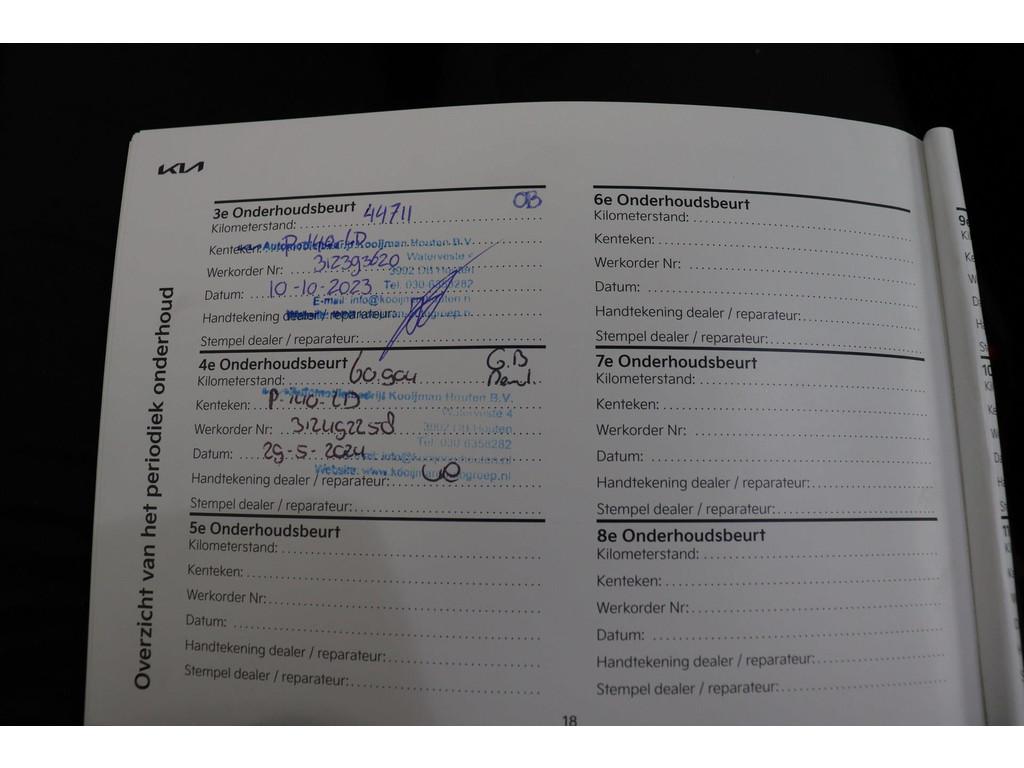 KIA
Overzicht van het periodiek onderhoud
3e Onderhoudsbeurt OB
Kilometerstand: 44711
Kenteken: P-140-LD
Automobielbedrijf Kooijman Houten B.V.
Werkorder Nr: 312393620
Waterveste 4
3992 DB Houten
Datum: 10-10-2023
Tel. 030-6358282
Handtekening dealer / reparateur:
Stempel dealer / reparateur:
4e Onderhoudsbeurt G.B
Kilometerstand: 60.904
Kenteken: P-140-LD
Automobielbedrijf Kooijman Houten B.V.
Waterveste 4
Werkorder Nr: 312492258
3992 DB Houten
Tel: 030 6358282
Datum: 29-5-2024
Website: www.kooijmanautogroep.nl
Handtekening dealer / reparateur:
Stempel dealer / reparateur:
5e Onderhoudsbeurt
Kilometerstand:
Kenteken:
Werkorder Nr:
Datum:
Handtekening dealer / reparateur:
Stempel dealer / reparateur:
6e Onderhoudsbeurt
Kilometerstand:
Kenteken:
Werkorder Nr:
Datum:
Handtekening dealer / reparateur:
Stempel dealer / reparateur:
7e Onderhoudsbeurt
Kilometerstand:
Kenteken:
Werkorder Nr:
Datum:
Handtekening dealer / reparateur:
Stempel dealer / reparateur:
8e Onderhoudsbeurt
Kilometerstand:
Kenteken:
Werkorder Nr:
Datum:
Handtekening dealer / reparateur:
Stempel dealer / reparateur:
18